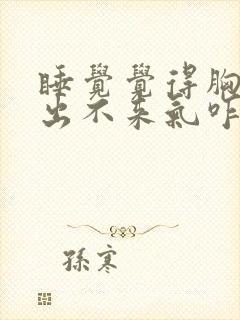 睡覺覺得胸
出不來氣咋
孫寒